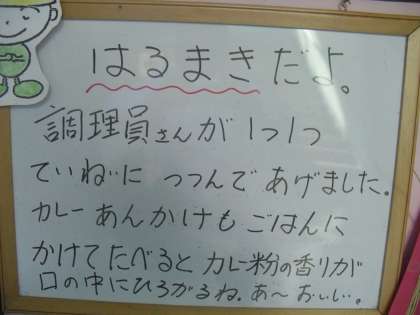 はるまきだよ。
調理員さんが1つ1つ
ていねいに つつんで あげました。
カレーあんかけも ごはんに
かけてたべると カレー粉の香りが
口の中にひろがるね。あ～おいしい。